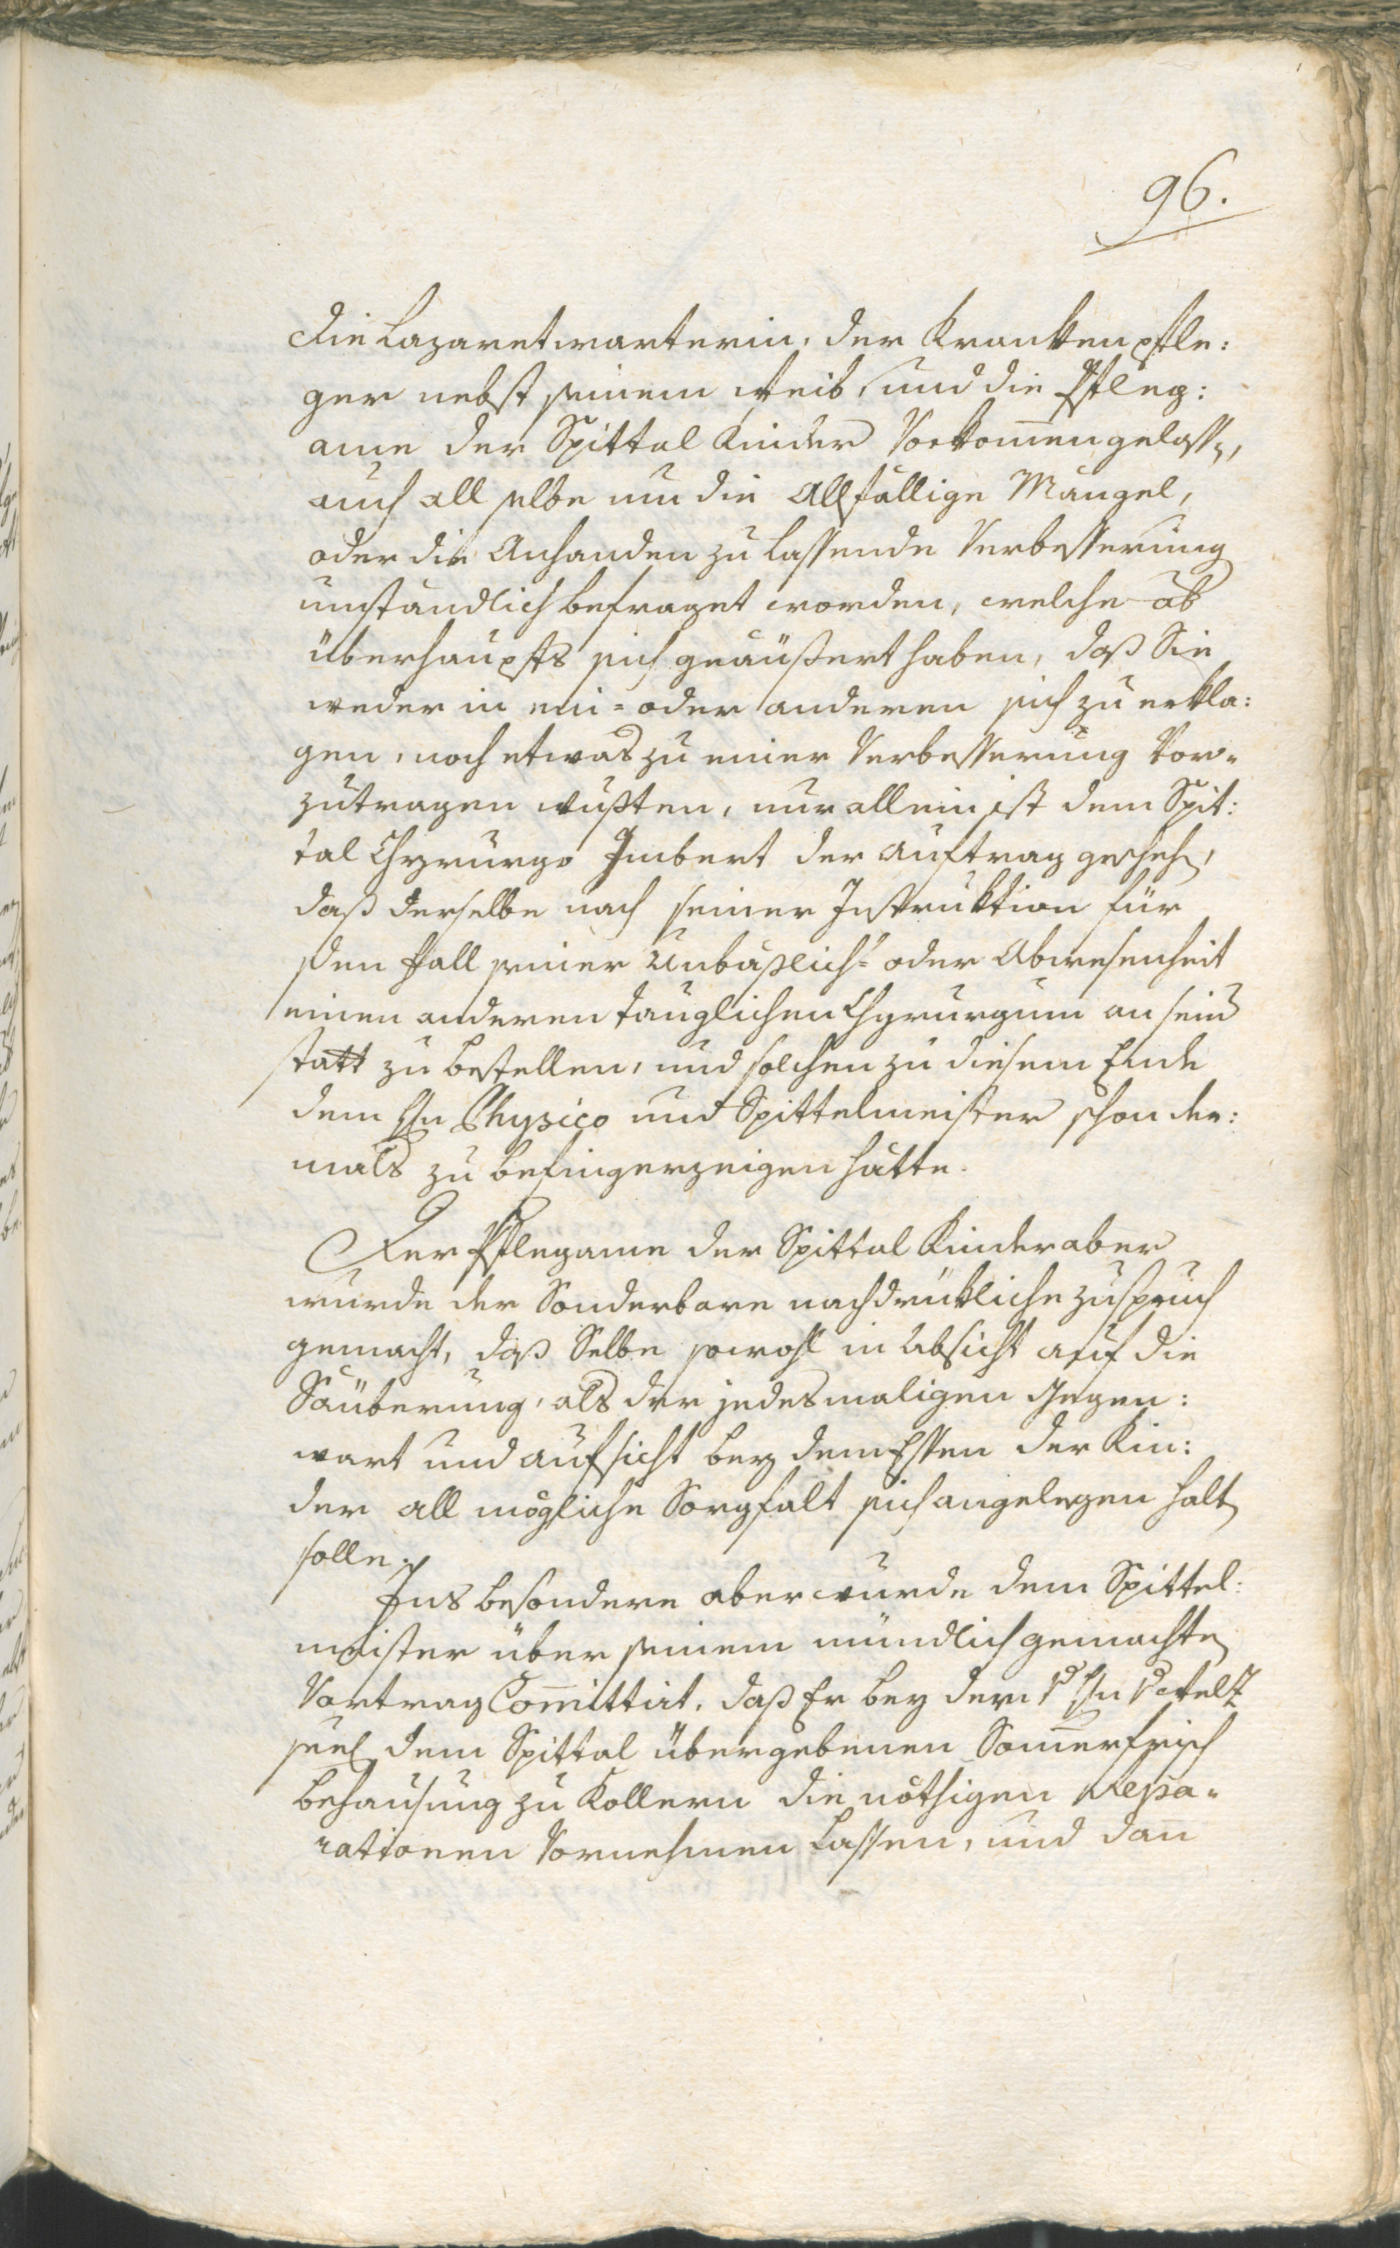 96.
die Lazaretwarterin, der Krankenpfle:
ger nebst seinem Weib, und die Pfleg:
ame der Spittal Kinder Vorkom̄en gelassen,
auch all selbe um die Allfällige Mängel,
oder die Anhanden zu lassende Verbesserung
umständlich befraget worden, welche ab
überhaupts sich geäüßert haben, daß Sie
weder in ein= oder anderen sich zu erkla:
gen, noch etwas zu einer Verbesserung Vor=
zutragen wußten, nur allein ist dem Spit:
tal Chyrurgo Imbert der Auftrag geschehen,
daß derselbe nach seiner Instruktion für
den fall seiner Unbäßlich= oder Abwesenheit
einen anderen tauglichen Chyrurgum an seine
statt zu bestellen, und solchen zu diesem Ende
dem Hn Physico und Spittelmeister schon der:
mals zu befingerzeigen hätte.
Der Pflegame der Spittal Kinder aber
wurde der Sonderbare nachdrükliche zuspruch
gemacht, daß Selbe sowohl in Absicht auf die
Säüberung, als der jedesmaligen Gegen:
wart und aufsicht bey dem Essen der Kin:
der all mögliche Sorgfalt sich angelegen halten
solle.
Ins besondere aber wurde dem Spittel:
meister über seinem mündlich gemachten
Vortrag Com̄ittirt, daß Er bey der Hn
seel dem Spittal übergebenen Som̄erfrisch
behausung zu Kollern die nöthigen Repa=
rationen Vornehmen lassen, und dan̄